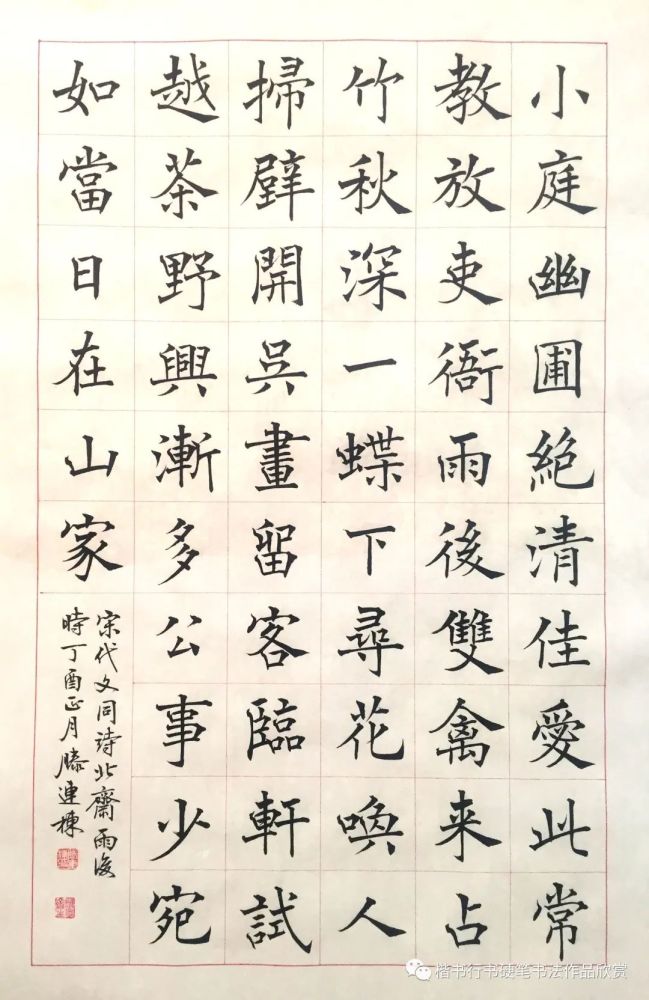 小庭幽圃絕清佳愛此常
教放吏衙雨後雙禽来占
竹秋深一蝶下尋花喚人
掃壁開吳畫留客臨軒試
越茶野興漸多公事少宛
如當日在山家
宋代文同詩北齋雨後
時丁酉正月滕連棟
楷书行书硬笔书法作品欣赏